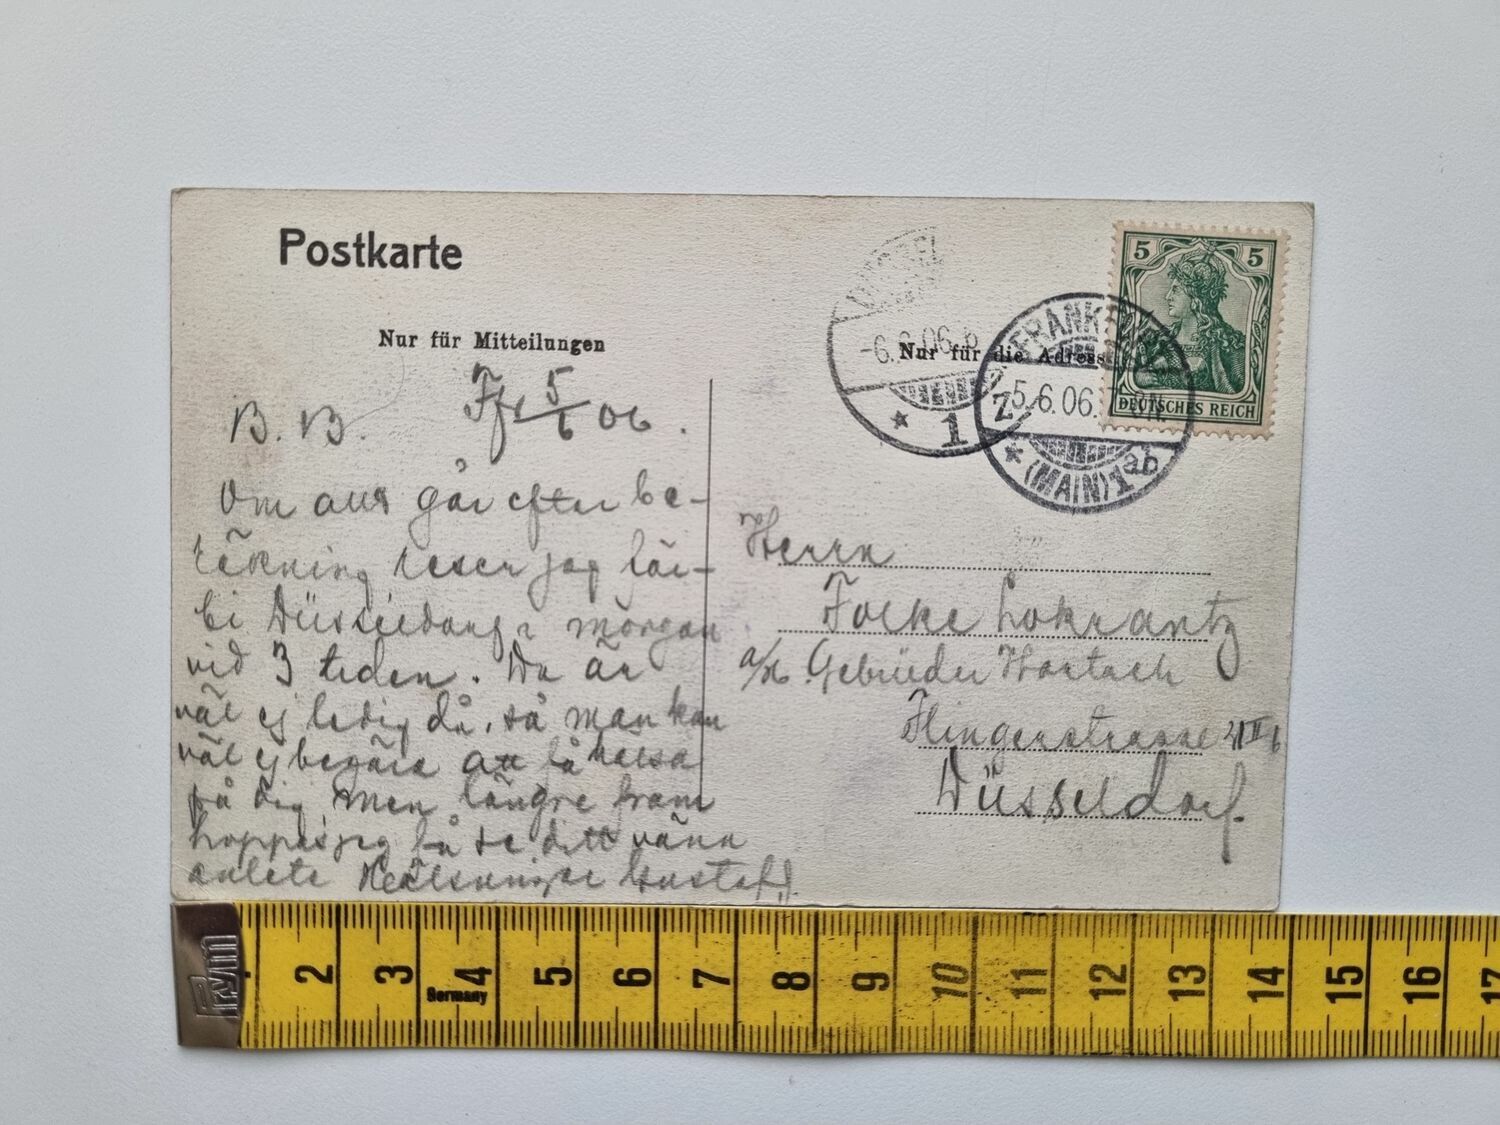 Postkarte
Nur für Mitteilungen
Nur für die Adresse
5 5
DEUTSCHES REICH
FRANKFURT
5.6.06.
(MAIN) 1 ab
-6.6.06.
* 1
B. B. Ffr 5/6 06.
Om allt går efter be-
räkning reser jag för-
bi Düsseldorf i morgon
vid 3 tiden. Du är
väl ej ledig då, så man kan
väl ej begära att få hälsa
på dig men längre fram
hoppas jag få se ditt väna
anlete Hälsningar Gustaf.
Herrn
Folke Lokrantz
Gebrüder Hartoch
Flingerstrasse
Düsseldorf.
Prym
2 3 4 5 6 7 8 9 10 11 12 13 14 15 16 17
Germany